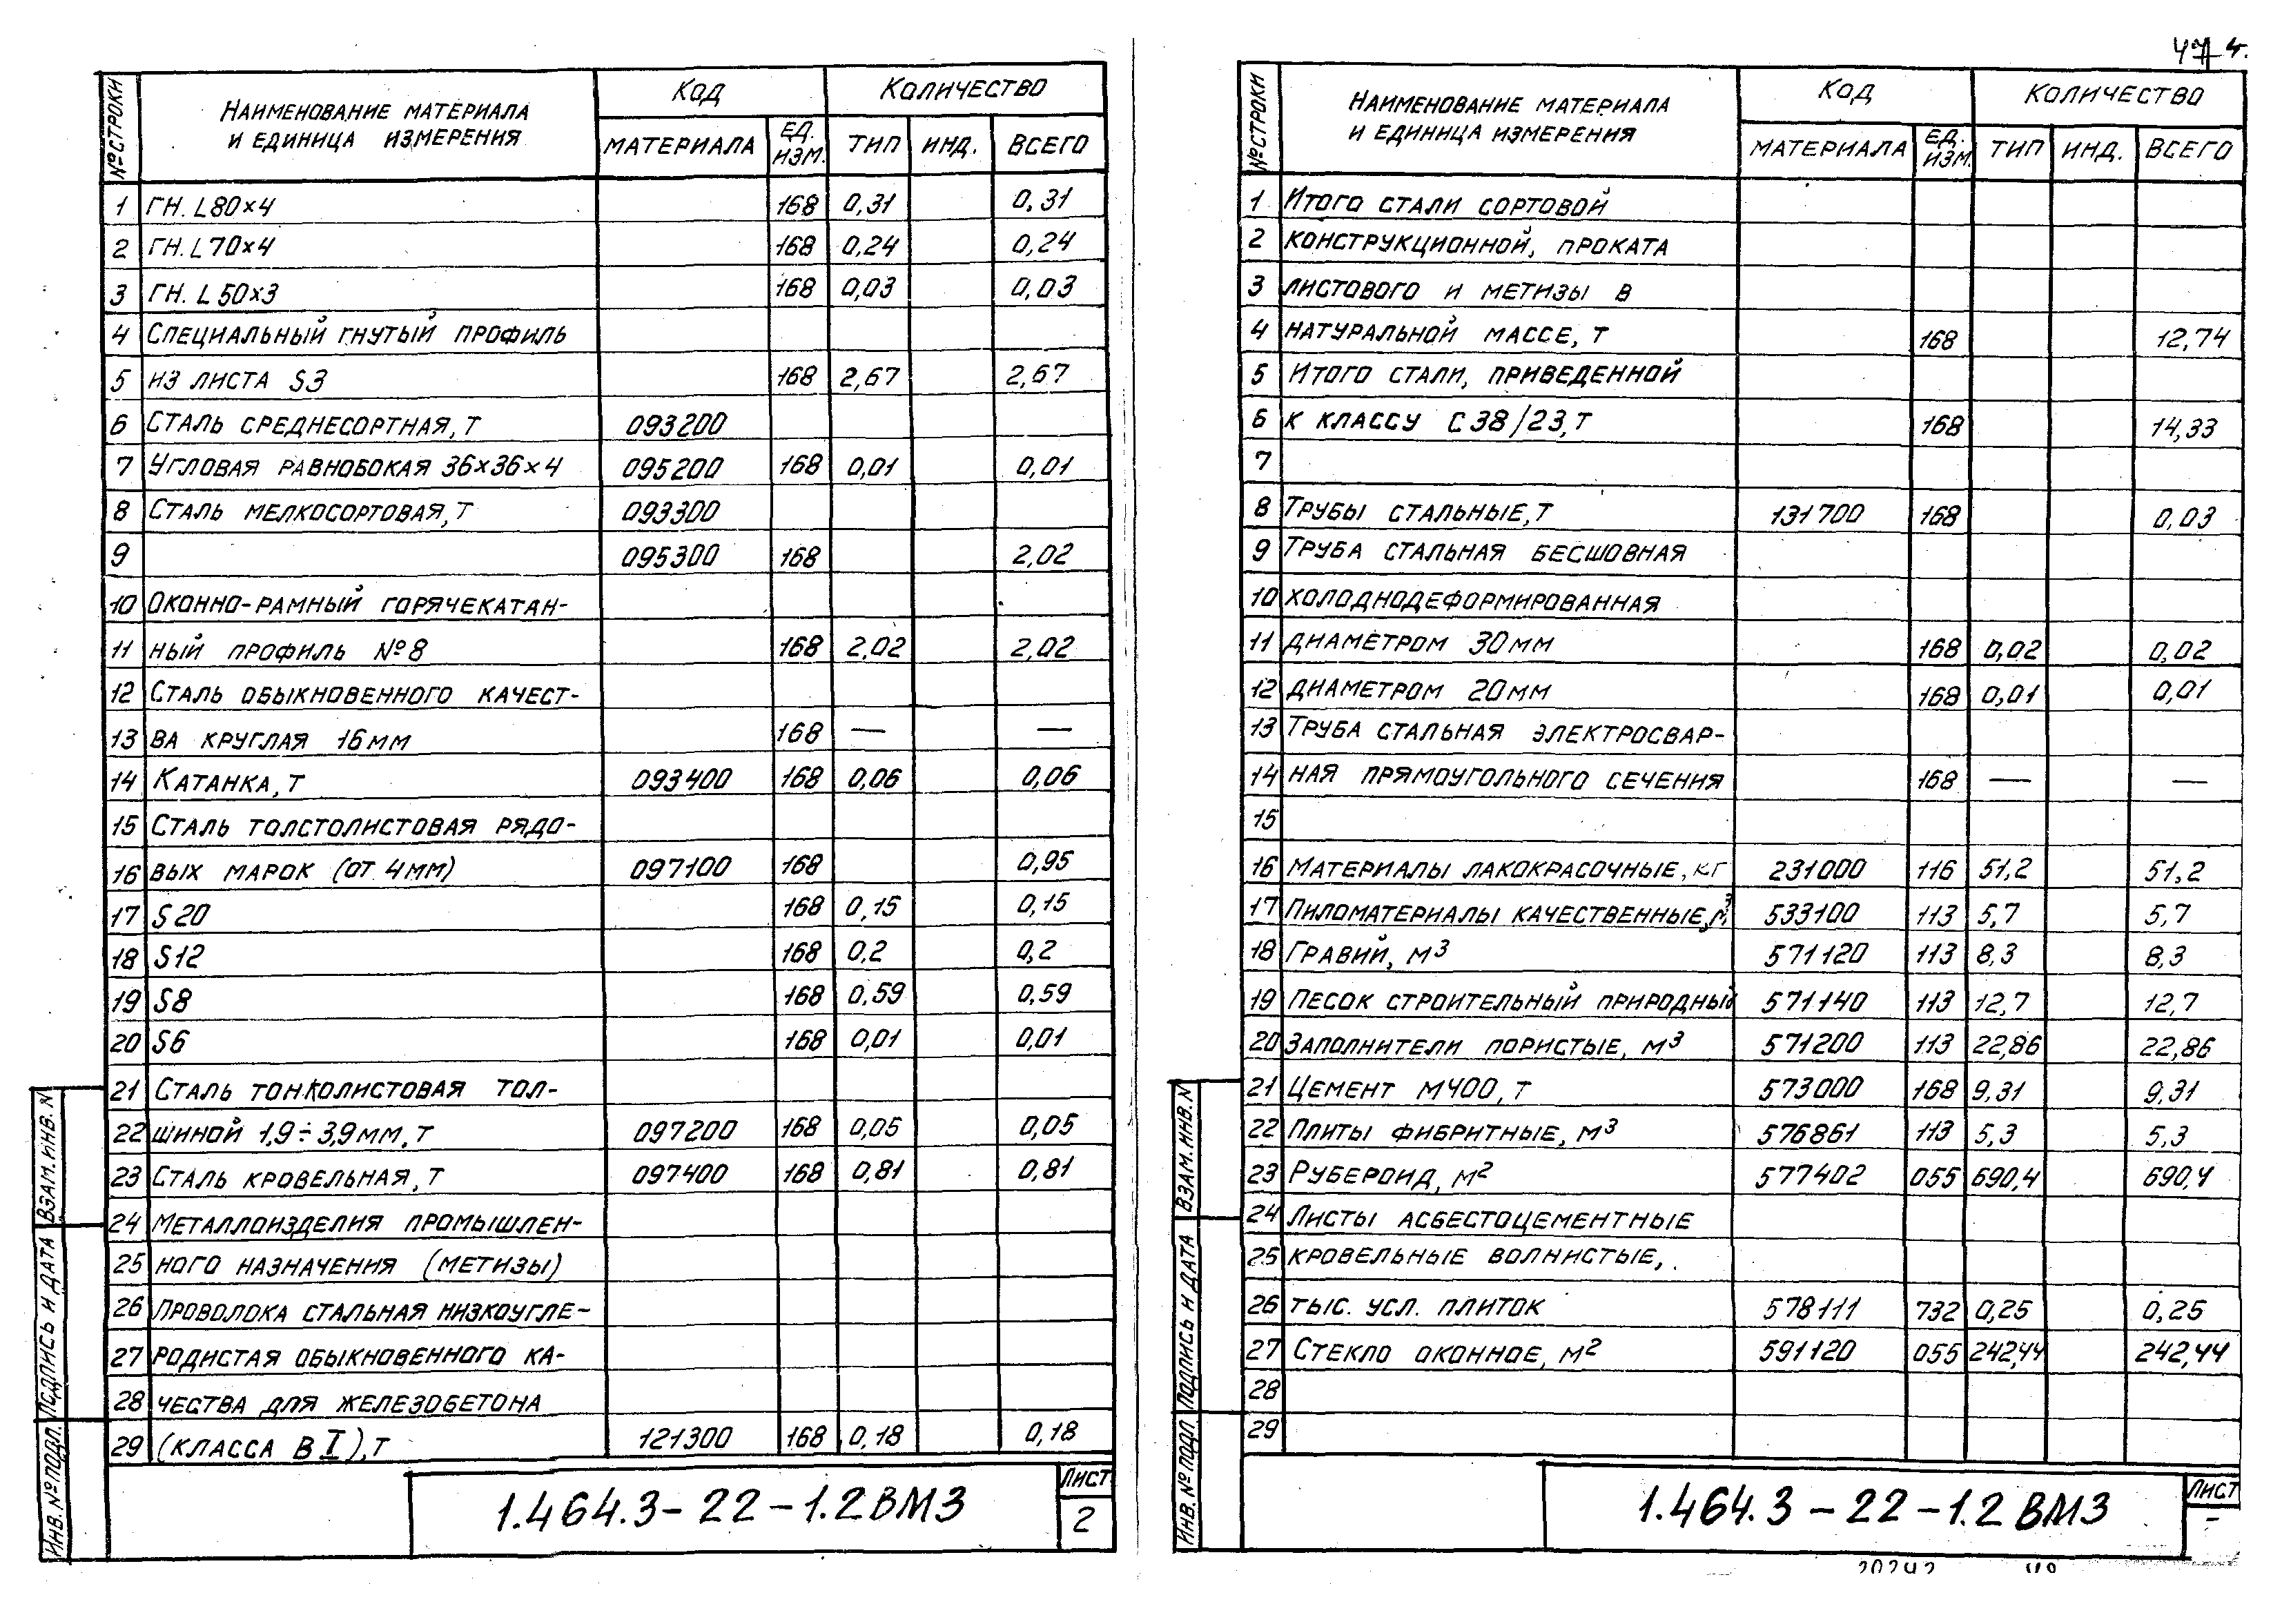 № СТРОКИ НАИМЕНОВАНИЕ МАТЕРИАЛА И ЕДИНИЦА ИЗМЕРЕНИЯ КОД КОЛИЧЕСТВО
МАТЕРИАЛА ЕД. ИЗМ. ТИП ИНД. ВСЕГО
1 ГН. L80×4 168 0,31 0,31
2 ГН. L70×4 168 0,24 0,24
3 ГН. L50×3 168 0,03 0,03
4 СПЕЦИАЛЬНЫЙ ГНУТЫЙ ПРОФИЛЬ
5 ИЗ ЛИСТА S3 168 2,67 2,67
6 СТАЛЬ СРЕДНЕСОРТНАЯ, Т 093200
7 УГЛОВАЯ РАВНОБОКАЯ 36×36×4 095200 168 0,01 0,01
8 СТАЛЬ МЕЛКОСОРТОВАЯ, Т 093300
9 095300 168 2,02
10 ОКОННО-РАМНЫЙ ГОРЯЧЕКАТАН-
11 НЫЙ ПРОФИЛЬ №8 168 2,02 2,02
12 СТАЛЬ ОБЫКНОВЕННОГО КАЧЕСТ-
13 ВА КРУГЛАЯ 16ММ 168 — —
14 КАТАНКА, Т 093400 168 0,06 0,06
15 СТАЛЬ ТОЛСТОЛИСТОВАЯ РЯДО-
16 ВЫХ МАРОК (ОТ 4ММ) 097100 168 0,95
17 S20 168 0,15 0,15
18 S12 168 0,2 0,2
19 S8 168 0,59 0,59
20 S6 168 0,01 0,01
21 СТАЛЬ ТОНКОЛИСТОВАЯ ТОЛ-
22 ЩИНОЙ 1,9÷3,9ММ, Т 097200 168 0,05 0,05
23 СТАЛЬ КРОВЕЛЬНАЯ, Т 097400 168 0,81 0,81
24 МЕТАЛЛОИЗДЕЛИЯ ПРОМЫШЛЕН-
25 НОГО НАЗНАЧЕНИЯ (МЕТИЗЫ)
26 ПРОВОЛОКА СТАЛЬНАЯ НИЗКОУГЛЕ-
27 РОДИСТАЯ ОБЫКНОВЕННОГО КА-
28 ЧЕСТВА ДЛЯ ЖЕЛЕЗОБЕТОНА
29 (КЛАССА В I), Т 121300 168 0,18 0,18
ИНВ. № ПОДЛ. ПОДПИСЬ И ДАТА ВЗАМ. ИНВ. N
1.464.3-22-1.2ВМ3
ЛИСТ
2
47 4.
№ СТРОКИ НАИМЕНОВАНИЕ МАТЕРИАЛА И ЕДИНИЦА ИЗМЕРЕНИЯ КОД КОЛИЧЕСТВО
МАТЕРИАЛА ЕД. ИЗМ. ТИП ИНД. ВСЕГО
1 ИТОГО СТАЛИ СОРТОВОЙ
2 КОНСТРУКЦИОННОЙ, ПРОКАТА
3 ЛИСТОВОГО И МЕТИЗЫ В
4 НАТУРАЛЬНОЙ МАССЕ, Т 168 12,74
5 ИТОГО СТАЛИ, ПРИВЕДЕННОЙ
6 К КЛАССУ С38/23, Т 168 14,33
7
8 ТРУБЫ СТАЛЬНЫЕ, Т 131700 168 0,03
9 ТРУБА СТАЛЬНАЯ БЕСШОВНАЯ
10 ХОЛОДНОДЕФОРМИРОВАННАЯ
11 ДИАМЕТРОМ 30ММ 168 0,02 0,02
12 ДИАМЕТРОМ 20ММ 168 0,01 0,01
13 ТРУБА СТАЛЬНАЯ ЭЛЕКТРОСВАР-
14 НАЯ ПРЯМОУГОЛЬНОГО СЕЧЕНИЯ 168 — —
15
16 МАТЕРИАЛЫ ЛАКОКРАСОЧНЫЕ, КГ 231000 116 51,2 51,2
17 ПИЛОМАТЕРИАЛЫ КАЧЕСТВЕННЫЕ, М³ 533100 113 5,7 5,7
18 ГРАВИЙ, М³ 571120 113 8,3 8,3
19 ПЕСОК СТРОИТЕЛЬНЫЙ ПРИРОДНЫЙ 571140 113 12,7 12,7
20 ЗАПОЛНИТЕЛИ ПОРИСТЫЕ, М³ 571200 113 22,86 22,86
21 ЦЕМЕНТ М400, Т 573000 168 9,31 9,31
22 ПЛИТЫ ФИБРИТНЫЕ, М³ 576861 113 5,3 5,3
23 РУБЕРОИД, М² 577402 055 690,4 690,4
24 ЛИСТЫ АСБЕСТОЦЕМЕНТНЫЕ
25 КРОВЕЛЬНЫЕ ВОЛНИСТЫЕ,
26 ТЫС. УСЛ. ПЛИТОК 578111 732 0,25 0,25
27 СТЕКЛО ОКОННОЕ, М² 591120 055 242,44 242,44
28
29
ИНВ. № ПОДЛ ПОДПИСЬ И ДАТА ВЗАМ. ИНВ. N
1.464.3-22-1.2ВМ3
ЛИСТ